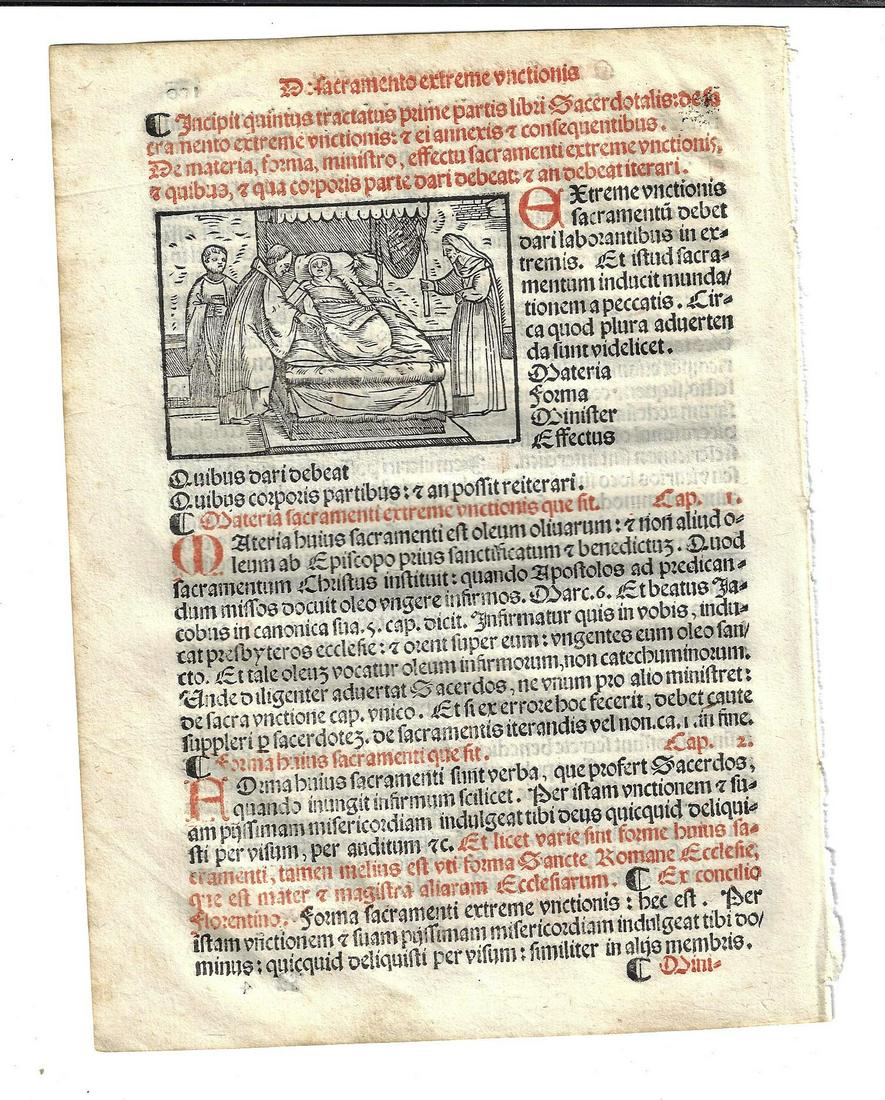 D: sacramento extreme vnctionis
¶ Incipit quintus tractatus prime partis libri Sacerdotalis: de sa
cramento extreme vnctionis: ⁊ ei annexis ⁊ consequentibus.
De materia, forma, ministro, effectu sacramenti extreme vnctionis,
⁊ quibus, ⁊ qua corporis parte dari debeat: ⁊ an debeat iterari.
EXtreme vnctionis
sacramentū debet
dari laborantibus in ex-
tremis. Et istud sacra-
mentum inducit munda/
tionem a peccatis. Cir-
ca quod plura aduerten
da sunt videlicet.
Materia
Forma
Minister
Effectus
Quibus dari debeat
Quibus corporis partibus: ⁊ an possit reiterari.
¶ Materia sacramenti extreme vnctionis que sit. Cap. 1.
MAteria huius sacramenti est oleum oliuarum: ⁊ non aliud o-
leum ab Episcopo prius sanctificatum ⁊ benedictuʒ. Quod
sacramentum Christus instituit: quando Apostolos ad predican-
dum missos docuit oleo vngere infirmos. Marc. 6. Et beatus Ja-
cobus in canonica sua. 5. cap. dicit. Infirmatur quis in vobis, indu-
cat presbyteros ecclesie: ⁊ orent super eum: vngentes eum oleo san/
cto. Et tale oleuʒ vocatur oleum infirmorum, non catechuminorum.
Unde diligenter aduertat Sacerdos, ne vnum pro alio ministret:
de sacra vnctione cap. vnico. Et si ex errore hoc fecerit, debet caute
suppleri ꝑ sacerdoteʒ. de sacramentis iterandis vel non. ca. 1. in fine.
¶ Forma huius sacramenti que sit. Cap. 2.
FOrma huius sacramenti sunt verba, que profert Sacerdos,
quando inungit infirmum scilicet. Per istam vnctionem ⁊ su-
am pijssimam misericordiam indulgeat tibi deus quicquid deliqui-
sti per visum, per auditum ⁊c. Et licet varie sint forme huius sa-
cramenti, tamen melius est vti forma Sancte Romane Ecclesie,
que est mater ⁊ magistra aliarum Ecclesiarum. ¶ Ex concilio
Florentino. Forma sacramenti extreme vnctionis: hec est. Per
istam vnctionem ⁊ suam pijssimam misericordiam indulgeat tibi do/
minus: quicquid deliquisti per visum: similiter in alijs membris.
¶ Mini-